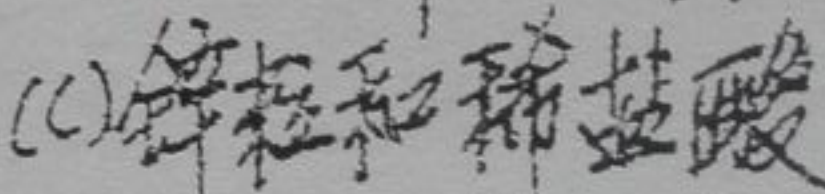 (C)锌粒和稀盐酸